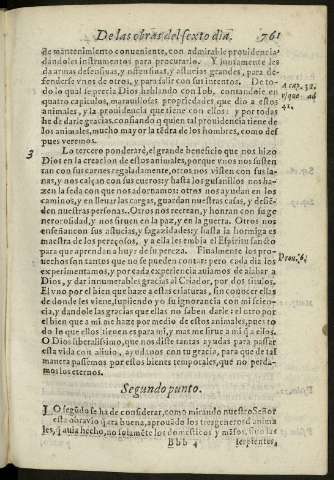 De las obras del sexto dia. 761
de mantenimiento conueniente, con admirable prouidencia,
dandoles instrumentos para procurarlo. Y juntamente les
da armas defensiuas, y ofensiuas, y astucias grandes, para de-
fenderse vnos de otros, y para salir con sus intentos. De to-
do lo qual se precia Dios hablando con Iob, contandole en
quatro capitulos, marauillosas propriedades que dio a estos
animales, y la prouidencia que tiene con ellos: y por todas
he de darle gracias, confiando q̃ quien tal prouidencia tiene de
los animales, mucho mayor la tẽdra de los hombres, como des
pues veremos.
A cap. 38.
vsque ad
42.
3 Lo tercero ponderarè, el grande beneficio que nos hizo
Dios en la creacion de estos animales, porque vnos nos susten
tan con sus carnes regaladamente, otros nos visten con sus la-
nas, y nos calçan con sus cueros: y hasta los gusanillos nos ha-
zen la seda con que nos adornamos: otros nos ayudan en los
caminos, y en lleuar las cargas, guardar nuestras casas, y defiē-
den nuestras personas. Otros nos recrean, y honran con su ge
nerosidad, y nos siruen en la paz, y en la guerra. Otros nos
enseñan con sus astucias, y sagazidades: y hasta la hormiga es
maestra de los pereçosos, y a ella les embia el Espiritu sancto
para que aprendan a huyr de su pereza. Finalmente los pro-
Prou. 6.
uechos son tantos que no se pueden contar: pero cada dia los
experimentamos, y por cada experiencia auiamos de alabar a
Dios, y dar innumerables gracias al Criador, por dos titulos.
El vno por el bien que haze a estas criaturas, sin conocer ellas
de donde les viene, supliendo yo su ignorancia con mi scien-
cia, y dandole las gracias que ellas no saben darle: el otro por
el bien que a mi me haze por medio de estos animales, pues to
do lo que ellos tienen es para mi, y mas me sirue a mi q̃ a ellos.
O Dios liberalissimo, que nos diste tantas ayudas para passar
esta vida con aliuio, ayudanos con tu gracia, para que de tal
manera passemos por estos bienes temporales, que no perda-
mos los eternos.
Segundo punto.
LO segũdo se ha de considerar, como mirando nuestro Señor
esta obra vio q̃ era buena, aprouãdo los tres generos d anima
les, q̃ auia hecho, no solamẽte los domesticos y mãsos, sino las
Bbb 4 serpientes,